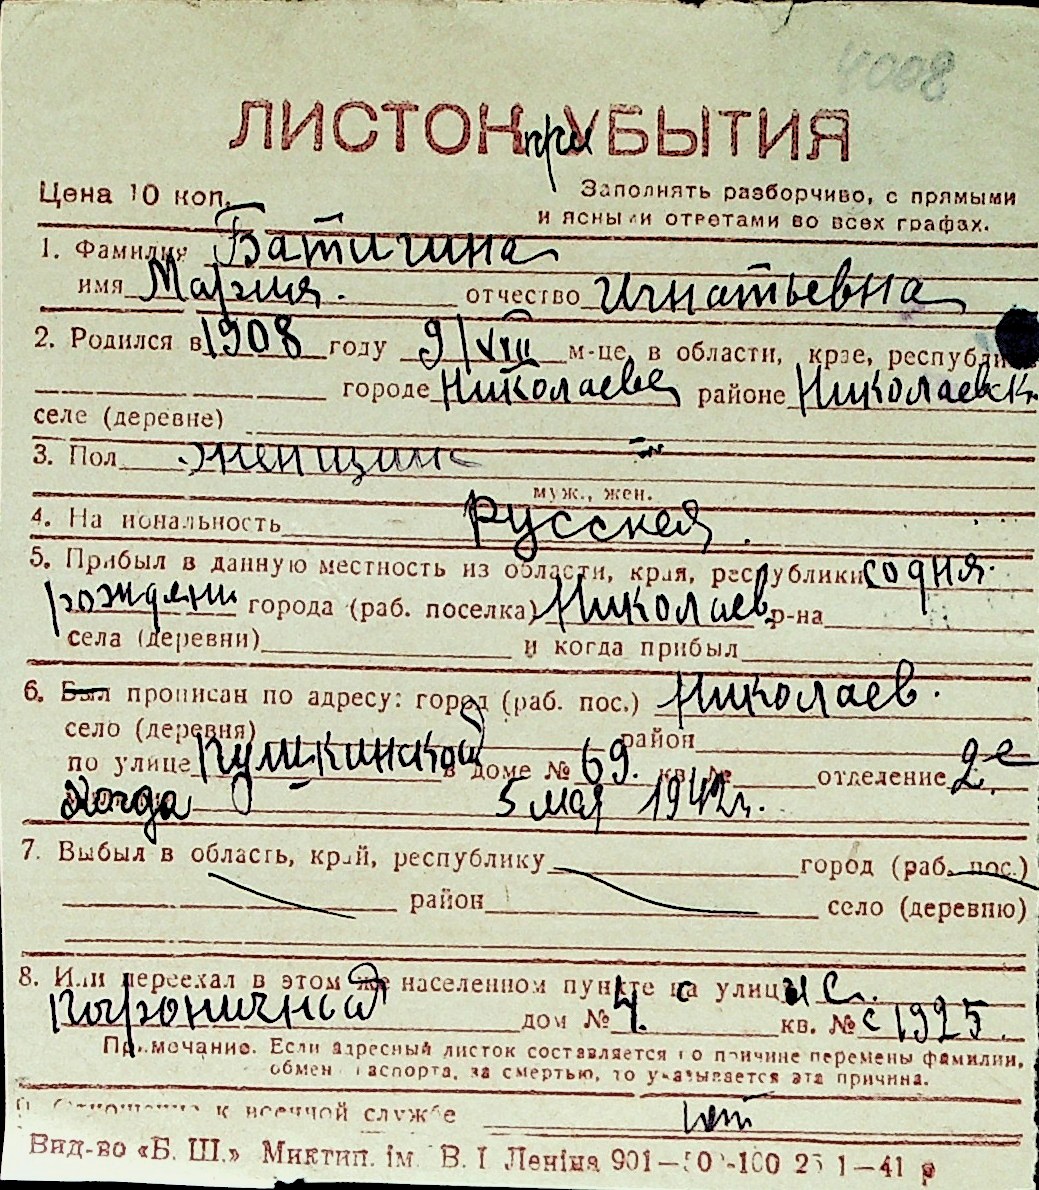 4008
ЛИСТОК при УБЫТИЯ
Цена 10 коп.
Заполнять разборчиво, с прямыми
и ясными ответами во всех графах.
1. Фамилия Батигина
имя Мария. отчество Игнатьевна
2. Родился в 1908 году 9/VIII м-це, в области, крае, республике
городе Николаеве районе Николаевск.
селе (деревне)
3. Пол женщин
муж., жен.
4. На иональность Русская.
5. Прибыл в данную местность из области, края, республики со дня
рождени города (раб. поселка) Николаев р-на
села (деревни) и когда прибыл
6. Был прописан по адресу: город (раб. пос.) Николаев.
село (деревня) район
по улице в доме № 69. кв. № отделение 2е
Когда 5 мая 1942г.
7. Выбыл в область, край, республику город (раб. пос.)
район село (деревню)
8. Или переехал в этом же населенном пункте на улицу
дом № 4. кв. № с 1925.
Примечание. Если адресный листок составляется по причине перемены фамилии,
обмен паспорта, за смертью, то указывается эта причина.
Отношение к военной службе нет
Вид-во «Б. Ш.» Миктип. ім. В. І Леніна 901—50-100 25 1—41 р